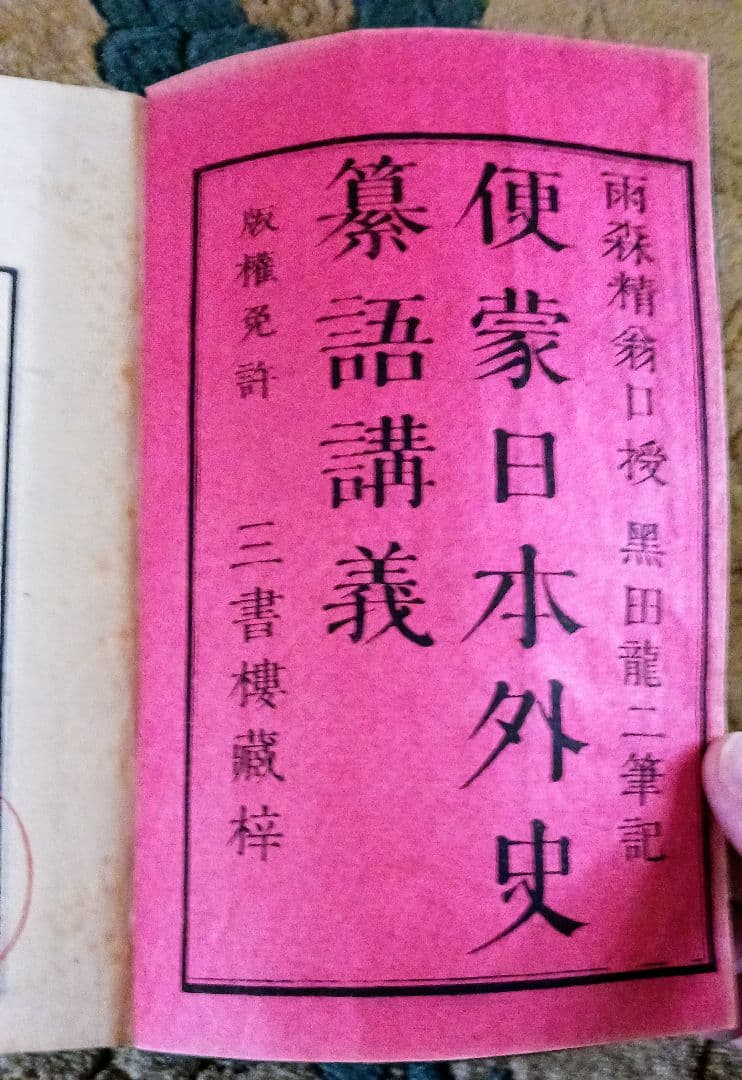 雨森精翁口授 黑田龍二筆記
便蒙日本外史
纂語講義
版權免許 三書樓藏梓